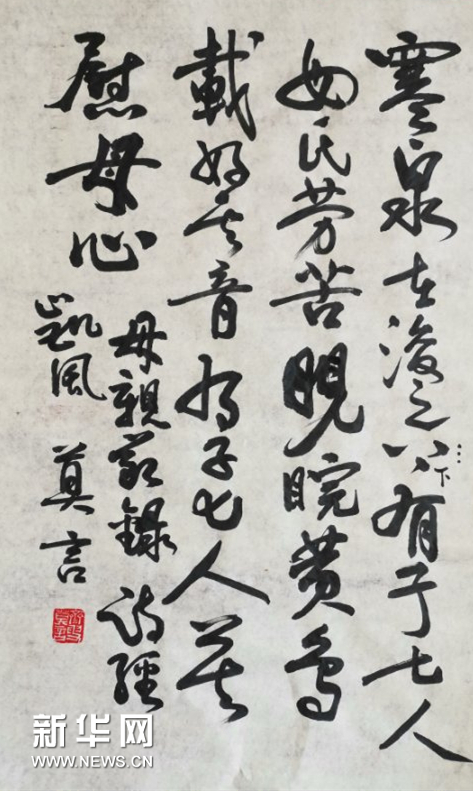 寒泉在浚之八下有子七人
母氏劳苦睍睆黄鸟
載好其音有子七人莫
慰母心
母親节錄诗經
凱風 莫言
新华网
WWW.NEWS.CN